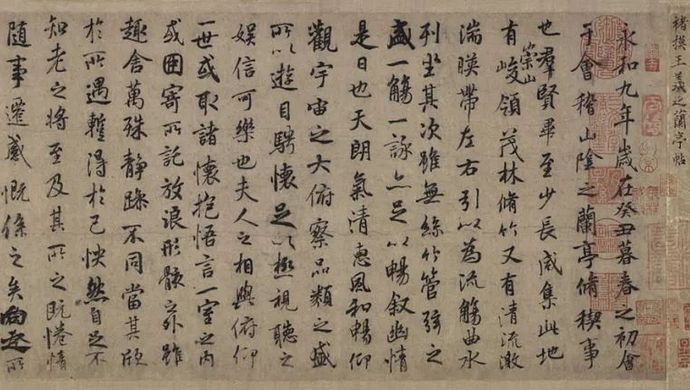 褚摸王羲之蘭亭帖
永和九年歲在癸丑暮春之初會
于會稽山陰之蘭亭脩稧事
也羣賢畢至少長咸集此地
有崇山峻領茂林脩竹又有清流激
湍暎帶左右引以為流觴曲水
列坐其次雖無絲竹管弦之
盛一觴一詠亦足以暢叙幽情
是日也天朗氣清惠風和暢仰
觀宇宙之大俯察品類之盛
所以遊目騁懷足以極視聽之
娛信可樂也夫人之相與俯仰
一世或取諸懷抱悟言一室之內
或因寄所託放浪形骸之外雖
趣舍萬殊靜躁不同當其欣
於所遇蹔得於己怏然自足不
知老之將至及其所之既惓情
隨事遷感慨係之矣向之所